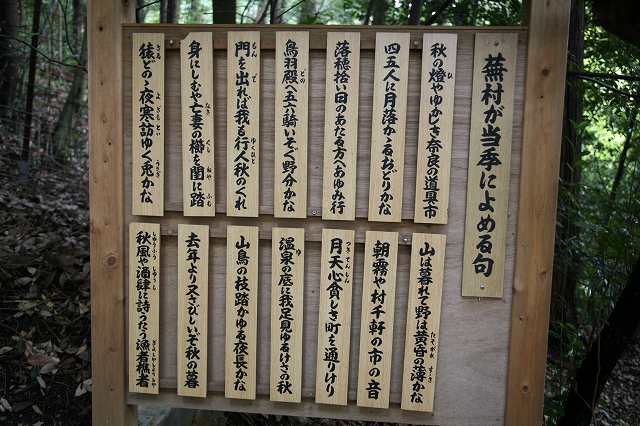 蕪村が当季によめる句
秋の燈やゆかしき奈良の道具市
四五人に月落かゝるおどりかな
落穂拾い日のあたる方へあゆみ行
鳥羽殿へ五六騎いそぐ野分かな
門を出れば我も行人秋のくれ
身にしむや亡妻の櫛を閨に踏
猿どのゝ夜寒訪ゆく兎かな
山は暮れて野は黄昏の薄かな
朝霧や村千軒の市の音
月天心貧しき町を通りけり
温泉の底に我足見ゆるけさの秋
山鳥の枝踏かゆる夜長かな
去年より又さびしいぞ秋の暮
秋風や酒肆に詩うたう漁者樵者